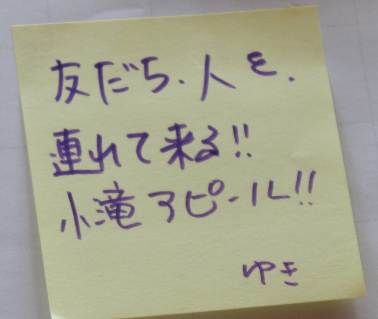 友だち、人を、
連れて来る!!
小滝アピール!!
ゆき